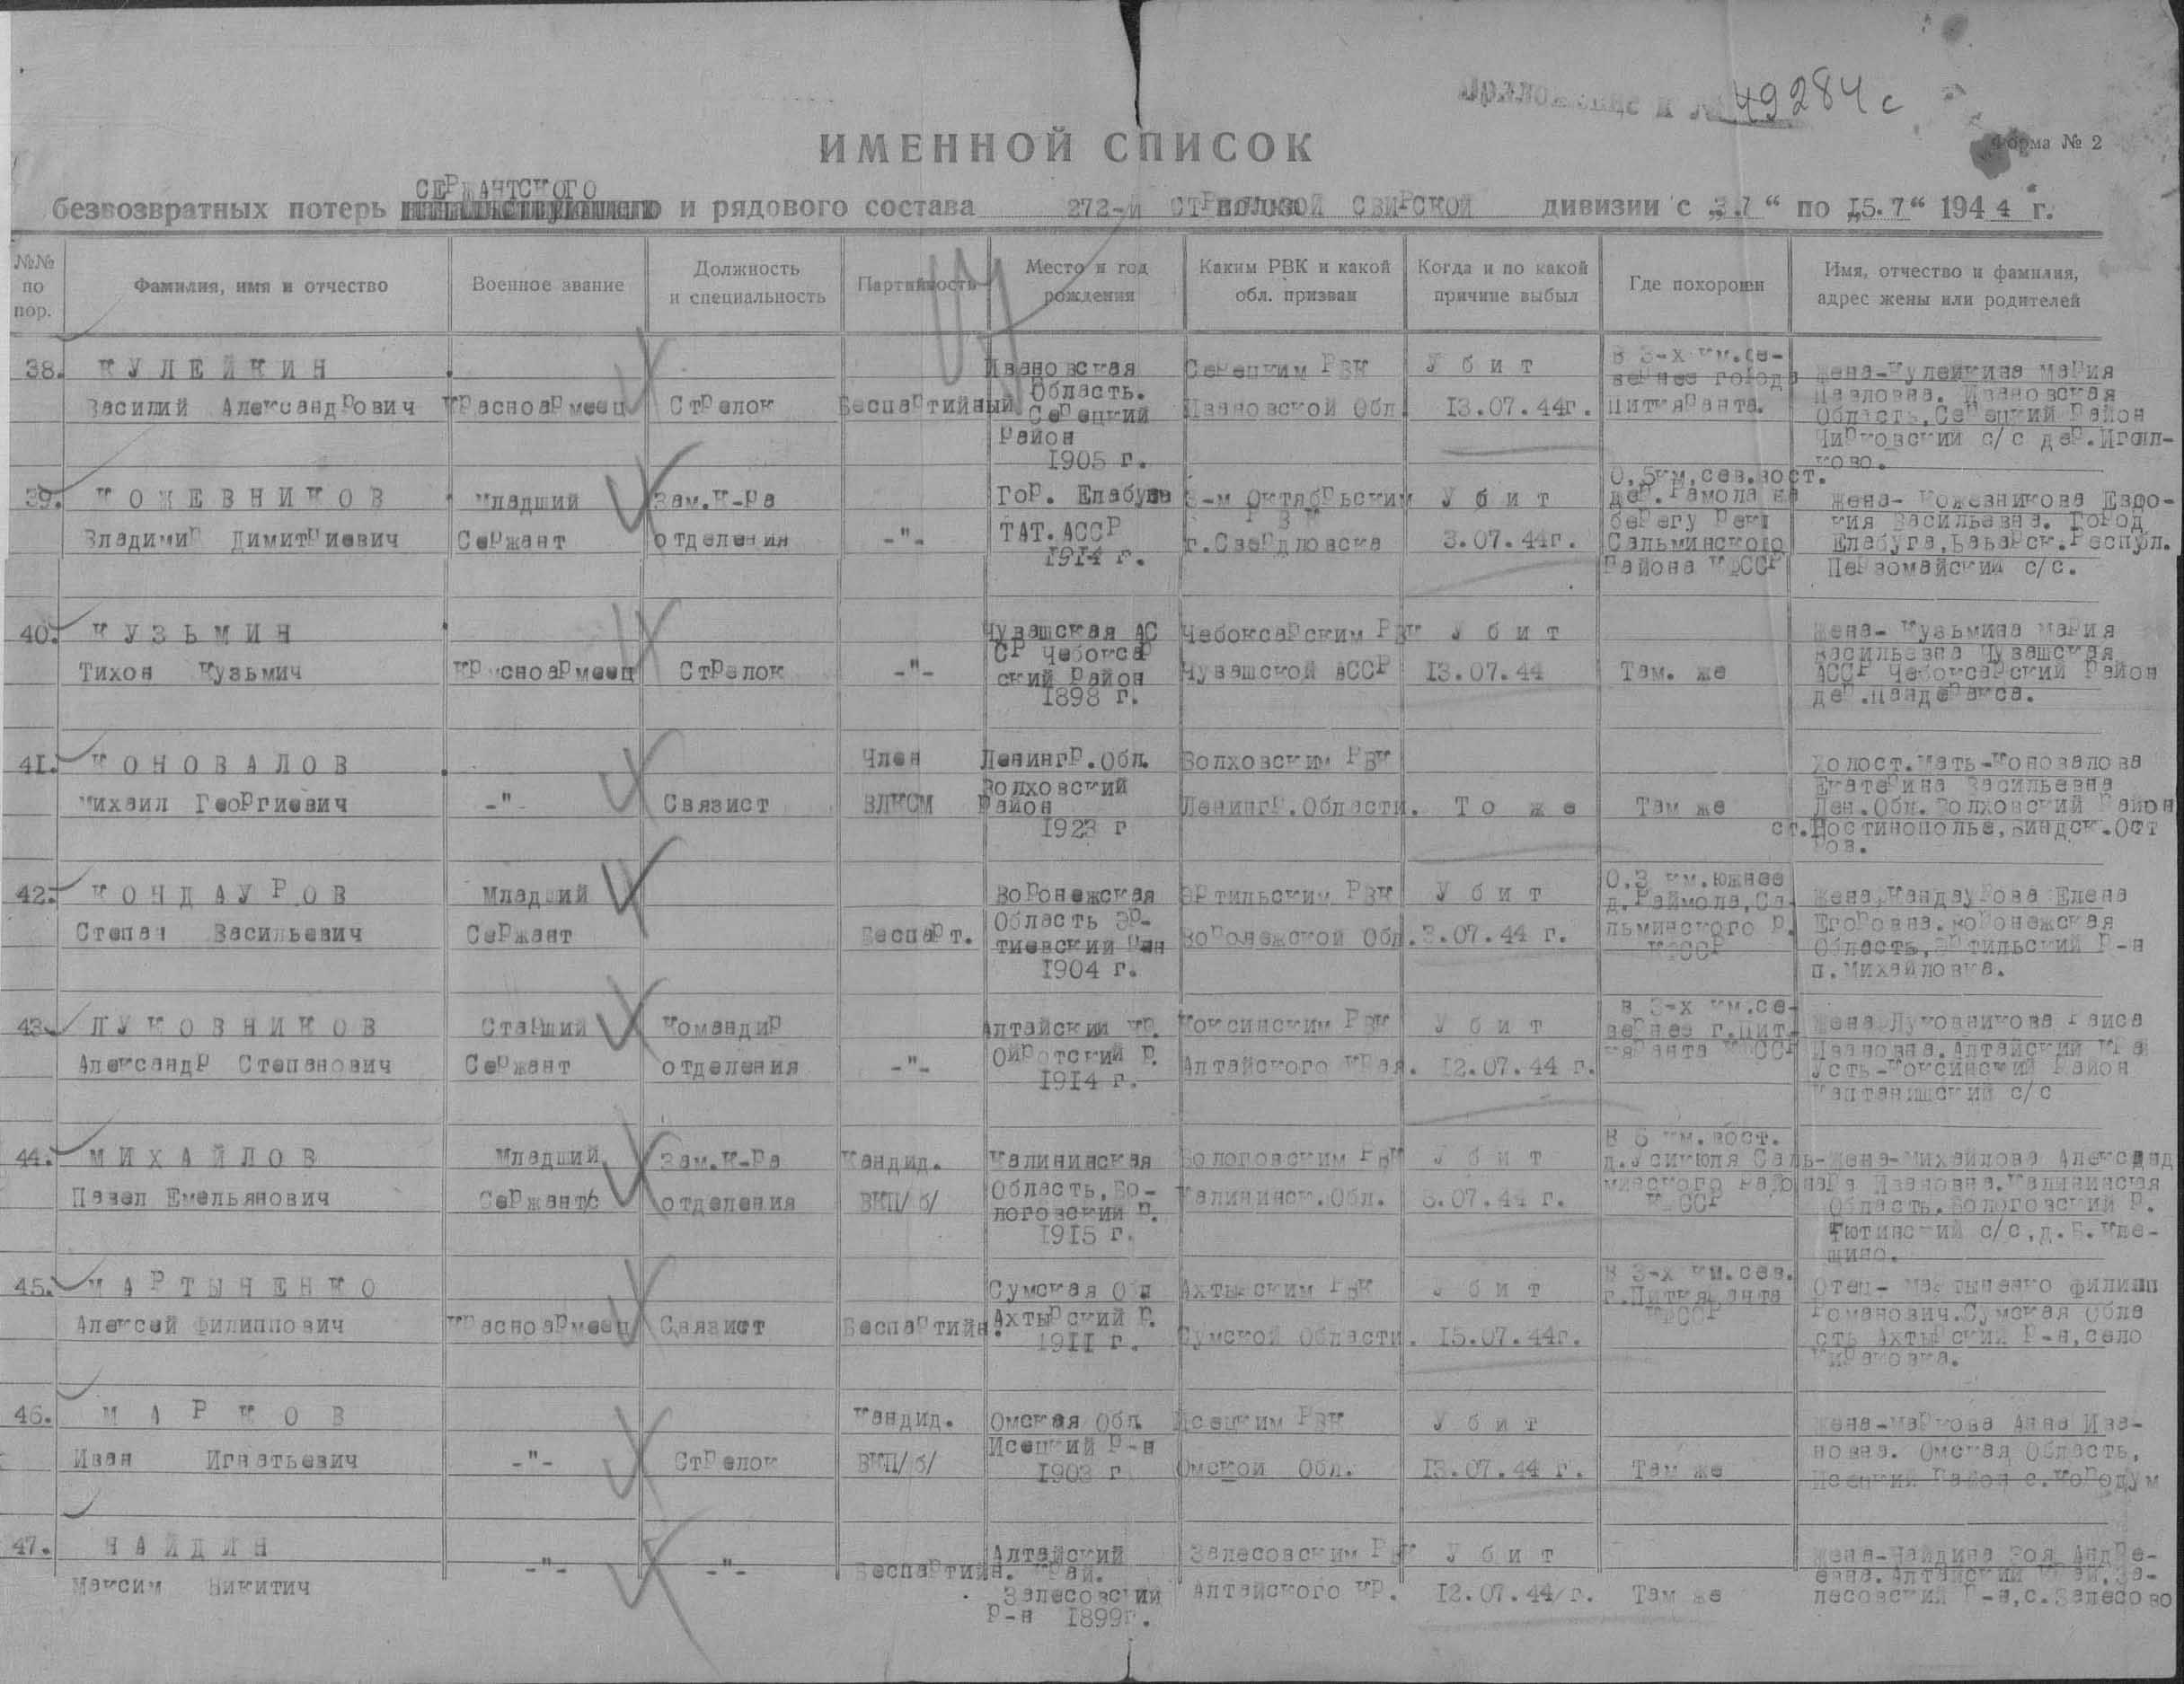 49284с
ИМЕННОЙ СПИСОК
Форма № 2
СЕРЖАНТСКОГО
безвозвратных потерь и рядового состава 272-й СТРЕЛКОВОЙ СВИРСКОЙ дивизии с „3.7“ по „15.7“ 1944 г.
№№ по пор.
Фамилия, имя и отчество
Военное звание
Должность и специальность
Партийность
Место и год рождения
Каким РВК и какой обл. призван
Когда и по какой причине выбыл
Где похоронен
Имя, отчество и фамилия, адрес жены или родителей
38. КУЛЕЙКИН
Василий Александрович
Красноармеец
Стрелок
Беспартийный
Ивановская
Область.
Середкий
Район
1905 г.
Ивановской Обл.
Убит
13.07.44г.
В 3-х км.се-
вернее города
Питкяранта.
Жена-Кулейкина Мария
Павловна. Ивановская
Область, Район
с/с дер.
ково.
39. КОЖЕВНИКОВ
Владимир Димитриевич
Младший
Сержант
Зам.К-ра
отделения
-"-
Гор. Елабуга
ТАТ.АССР
1914 г.
3-м Октябрьским
РВК
г.Свердловска
Убит
3.07.44г.
0,5км.сев.вост.
дер.Рамола на
берегу реки
Сальминского
Района КФССР
Жена- Кожевникова Евдо-
кия Васильевна. Город
Елабуга,
Первомайский с/с.
40. КУЗЬМИН
Тихон Кузьмич
Красноармеец
Стрелок
-"-
Чувашская АС
СР Чебоксар
ский Район
1898 г.
Чебоксарским РВК
Чувашской АССР
Убит
13.07.44
Там. же
Жена- Кузьмина Мария
Васильевна Чувашская
АССР Чебоксарский Район
дер.
41. КОНОВАЛОВ
Михаил Георгиевич
-"-
Связист
Член
ВЛКСМ
Ленингр.Обл.
Волховский
Район
1923 г
Волховским РВК
Ленингр.Области.
То же
Там же
Холост.Мать-Коновалова
Екатерина Васильевна
Лен.Обл.Волховский Район
ст.
ров.
42. КОНДАУРОВ
Степан Васильевич
Младший
Сержант
Беспарт.
Воронежская
Область Эр-
тиевский Р-н
1904 г.
Эртильским РВК
Воронежской Обл.
Убит
3.07.44 г.
0,3 км.южнее
д.Раймола,Са-
льминского р.
КФССР
Жена,Кандаурова Елена
Егоровна.Воронежская
Область,Эртильский Р-н
п.Михайловка.
43. ЛУКОВНИКОВ
Александр Степанович
Старший
Сержант
Командир
отделения
-"-
Алтайский кр.
Ойротский Р.
1914 г.
Коксинским РВК
Алтайского Края.
Убит
12.07.44 г.
в 3-х км.се-
вернее г.Пит-
каранта КФССР
Жена Луковникова Раиса
Ивановна.Алтайский Кра
Усть-Коксинский Район
с/с
44. МИХАЙЛОВ
Павел Емельянович
Младший
Сержант/с
Зам.К-ра
отделения
Кандид.
ВКП/б/
Калининская
Область,Бо-
логовский Р.
1915 г.
Бологовским РВК
Калининск.Обл.
Убит
8.07.44 г.
В 6 км.вост.
д.Усикюля Саль-
минского Райо
КФССР
Жена-Михайлова Александ
на Ивановна.Калининская
Область.Бологовский Р.
Тютинский с/с,д.Б.Кле-
щино.
45. МАРТЫНЕНКО
Алексей Филиппович
Красноармеец
Связист
Беспартийн.
Сумская Обл
Ахтырский Р.
1911 г.
Ахтырским РВК
Сумской Области.
Убит
15.07.44г.
В 3-х км.сев.
г.Питкяранта
КФССР
Отец- Мартыненко Филипп
Романович.Сумская Обла
сть Ахтырский Р-н,село
Кириковка.
46. МАРКОВ
Иван Игнатьевич
-"-
Стрелок
Кандид.
ВКП/б/
Омская Обл.
Исецкий Р-н
1903 г
Исецким РВК
Омской Обл.
Убит
13.07.44 г.
Там же
Жена-Маркова Анна Ива-
новна. Омская Область,
Исецкий Район с.
47. НАЙДИН
Максим Никитич
-"-
-"-
Беспартийн.
Алтайский
Край.
Залесовский
Р-н 1899г.
Залесовским РВК
Алтайского кр.
Убит
12.07.44 г.
Там же
Жена-Найдина Зоя Андре-
евна.Алтайский Край,За-
лесовский Р-н,с.Залесово